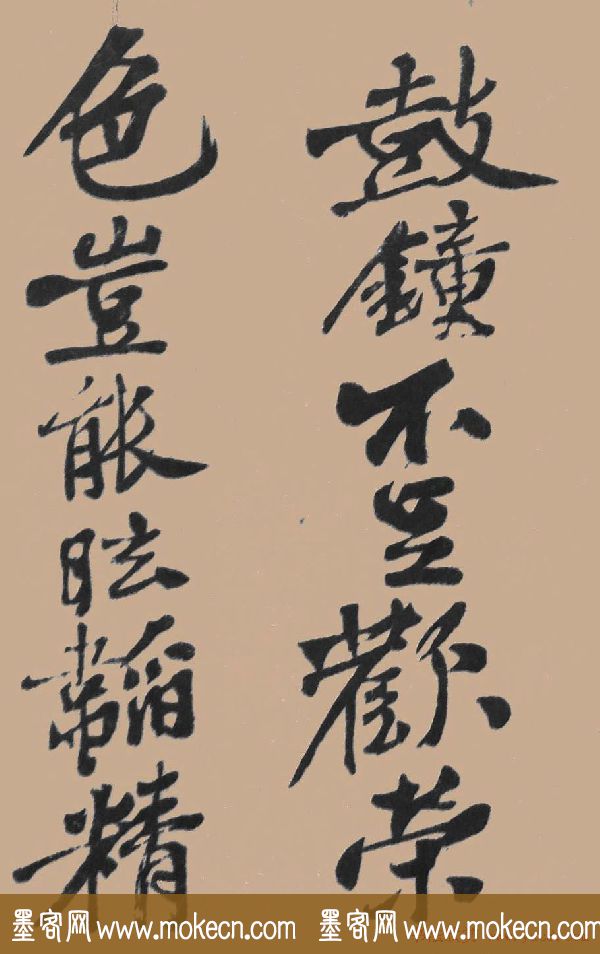 鼓鐘不足歡榮
色豈能眩韜精
墨客网 www.mokecn.com 墨客网 www.mokecn.com